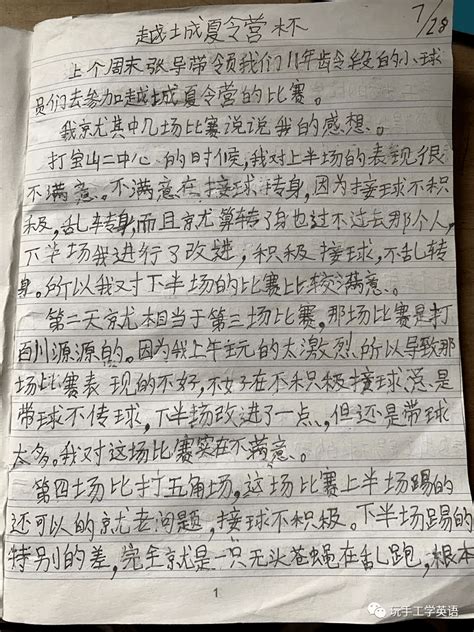 7/28
越城夏令营杯
上个周末张导带领我们11年龄段的小球
员们去参加越城夏令营的比赛。
我就其中几场比赛说说我的感想。
打宝山二中心的时候,我对上半场的表现很
不满意。不满意在接球转身,因为接球不积
极,乱转身,而且就算转了身也过不过去那个人,
下半场我进行了改进,积极接球,不乱转
身。所以我对下半场的比赛比较满意。
第二天就相当于第三场比赛,那场比赛是打
百川源源的。因为我上午玩的太激烈所以导致那
场比赛表现的不好,不好在不积极接球总是
带球不传球,下半场改进了一点,但还是带球
太多。我对这场比赛实在不满意。
第四场比打五角场,这场比赛上半场踢的
还可以的就老问题,接球不积极。下半场踢的
特别的差,完全就是一只无头苍蝇在乱跑,根本
1
玩手工学英语